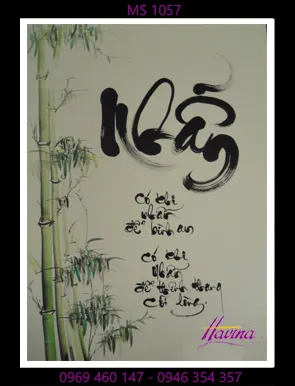 MS 1057
Nhẫn
Có khi
nhẫn
để bình an
Có khi
Nhẫn
để thênh thang
cõi lòng.
Havina
0969 460 147 - 0946 354 357